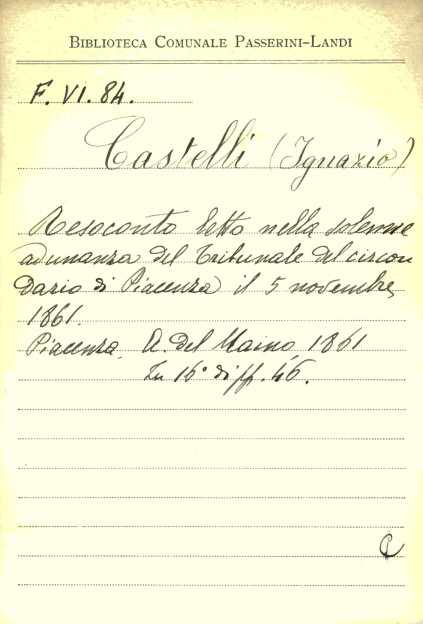 BIBLIOTECA COMUNALE PASSERINI-LANDI
F. VI. 84.
Castelli (Ignazio)
Resoconto letto nella solenne
adunanza del Tribunale del circon
dario di Piacenza il 5 novembre
1861.
Piacenza, A. del Maino, 1861
In 16° di pp. 46.